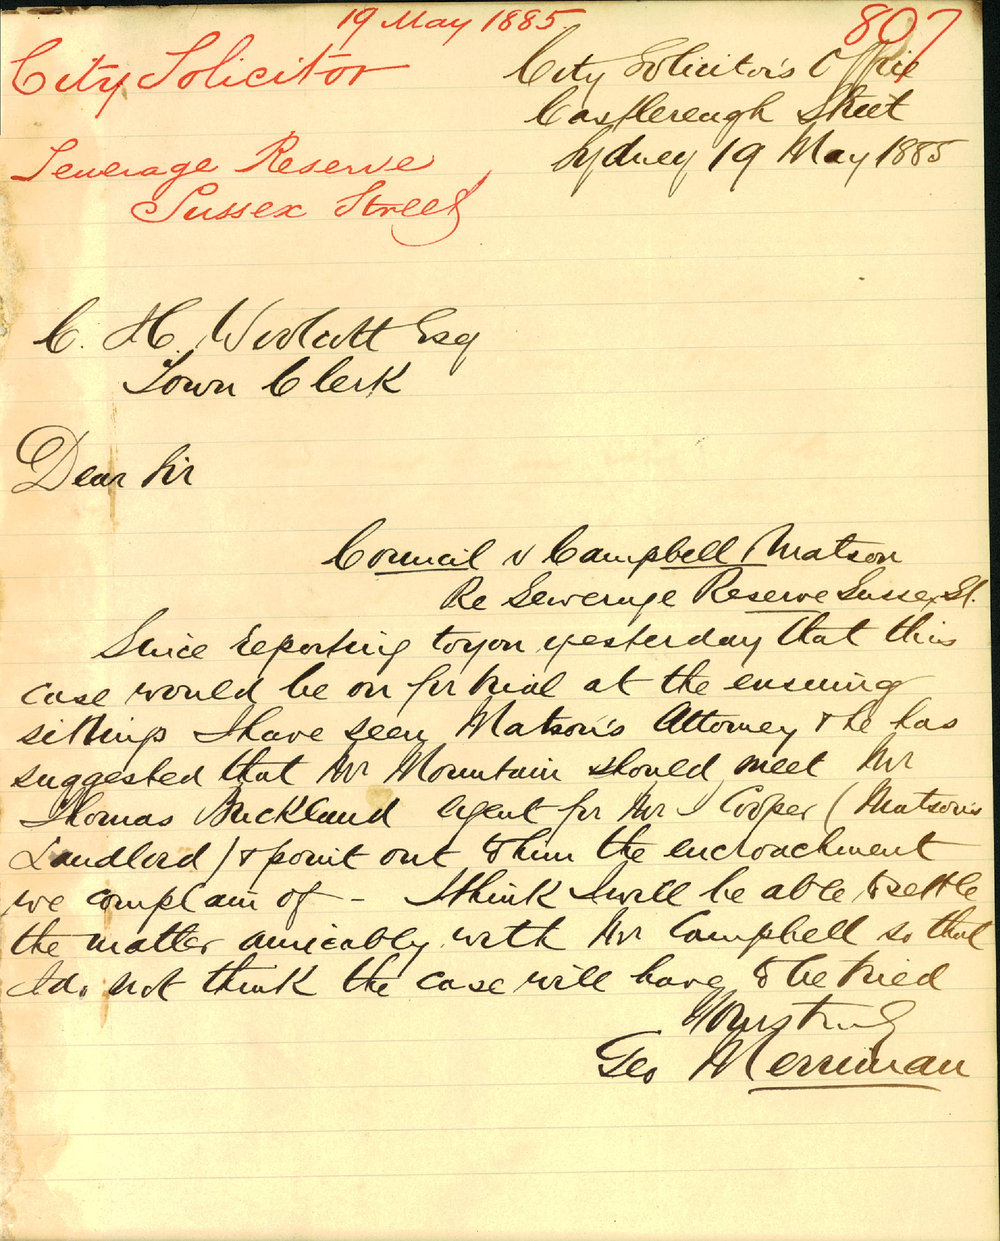 19 May 1885
807
City Solicitor
Sewerage Reserve
Sussex Street
City Solicitor's Office
Castlereagh Street
Sydney 19 May 1885
C. H. Woolcott Esq
Town Clerk
Dear Sir
Council v Campbell Matson
Re Sewerage Reserve Sussex St.
Since reporting to you yesterday that this
case would be on for trial at the ensuing
sittings I have seen Matson's Attorney & he has
suggested that Mr Mountain should meet Mr
Thomas Buckland agent for Mr Cooper (Matson's
Landlord) & point out to him the encroachment
we complain of - I think I will be able to settle
the matter amicably with Mr Campbell so that
I do not think the case will have to be tried
Yours truly
Geo Merriman